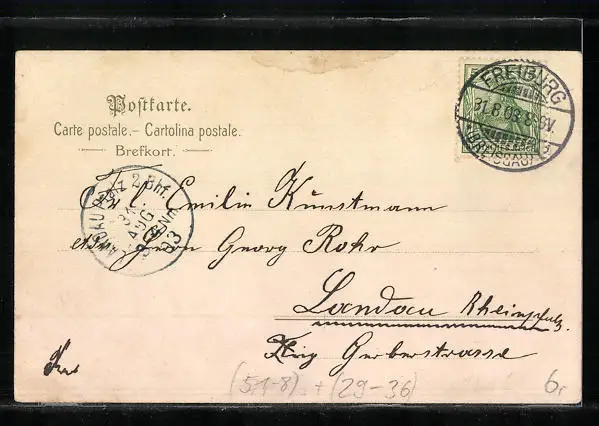 Postkarte.
Carte postale.- Cartolina postale.
Brefkort.
FREIBURG
31.8.03.8-9V.
(BREISGAU)
LANDAU PFALZ 2. Bhf.
31
AUG
03
Frl. Emilie Kunstmann
Herrn Georg Rohr
Landau Rheinpfalz.
Gerberstrasse
(5,1-8) + (29-36)
6,